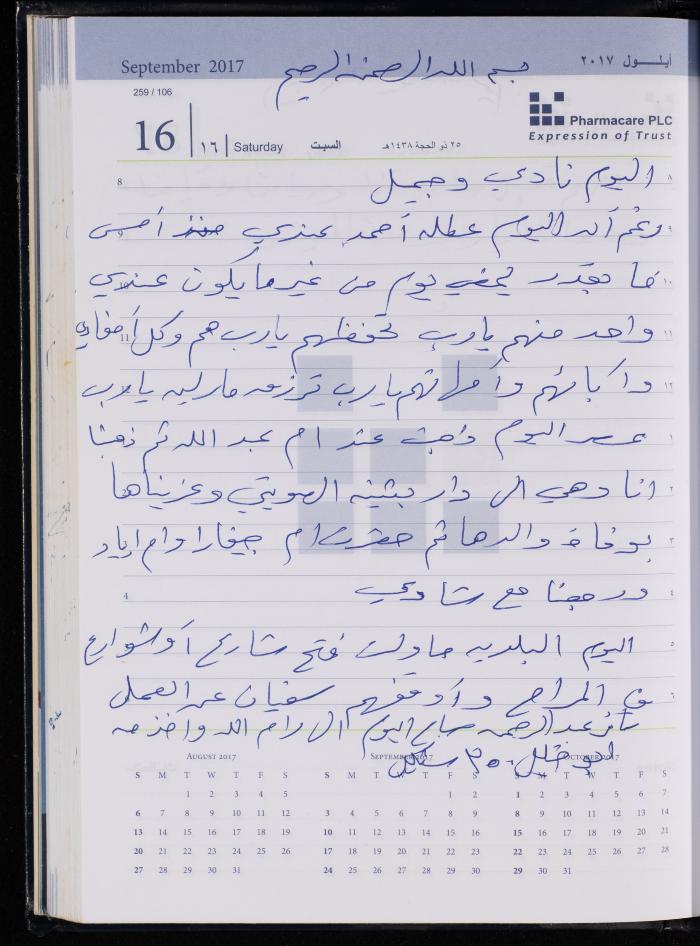 September 2017
بسم الله الرحمن الرحيم
أيلـــول ٢٠١٧
259 / 106
16 ١٦ Saturday السبت ٢٥ ذو الحجة ١٤٣٨هـ
Pharmacare PLC
Expression of Trust
8 اليوم نادي وجميل ٨
رغم أن اليوم عطله أحمد عندي منذ أمس
ما بقدر يمضي يوم من غير ما يكون عندي
واحد منهم يارب تحفظهم يارب هم وكل أحفادي
وأبائهم وأمهاتهم يارب ترزق مارليه يا رب
عصر اليوم ذهبت عند ام عبد الله ثم ذهبنا
انا وهي الى دار بثينه الهويتي وعزيناها
بوفاة والدها ثم حضرت ام جيفارا وام اياد
4 ورجعنا مع شادي ٤
اليوم البلديه حاولت فتح شارع أو شوارع
في المراح وأوقفهم سفيان عن العمل
سافر عبد الرحمن صباح اليوم الى رام الله وأخذ معه
ابو خليل ٣٥٠ شيكل
AUGUST 2017
S M T W T F S
1 2 3 4 5
6 7 8 9 10 11 12
13 14 15 16 17 18 19
20 21 22 23 24 25 26
27 28 29 30 31
SEPTEMBER 2017
S M T W T F S
1 2
3 4 5 6 7 8 9
10 11 12 13 14 15 16
17 18 19 20 21 22 23
24 25 26 27 28 29 30
OCTOBER 2017
S M T W T F S
1 2 3 4 5 6 7
8 9 10 11 12 13 14
15 16 17 18 19 20 21
22 23 24 25 26 27 28
29 30 31